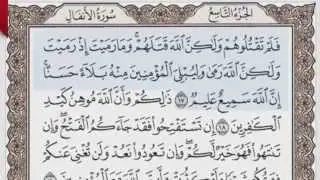 الجُزْءُ التَّاسِعُ سُورَةُ الأَنْفَالِ
فَلَمْ تَقْتُلُوهُمْ وَلَٰكِنَّ ٱللَّهَ قَتَلَهُمْ ۚ وَمَا رَمَيْتَ إِذْ رَمَيْتَ
وَلَٰكِنَّ ٱللَّهَ رَمَىٰ وَلِيُبْلِيَ ٱلْمُؤْمِنِينَ مِنْهُ بَلَآءً حَسَنًا ۚ
إِنَّ ٱللَّهَ سَمِيعٌ عَلِيمٌ ١٧ ذَٰلِكُمْ وَأَنَّ ٱللَّهَ مُوهِنُ كَيْدِ
ٱلْكَٰفِرِينَ ١٨ إِن تَسْتَفْتِحُوا۟ فَقَدْ جَآءَكُمُ ٱلْفَتْحُ ۖ وَإِن
تَنتَهُوا۟ فَهُوَ خَيْرٌ لَّكُمْ ۖ وَإِن تَعُودُوا۟ نَعُدْ وَلَن تُغْنِيَ عَنكُمْ